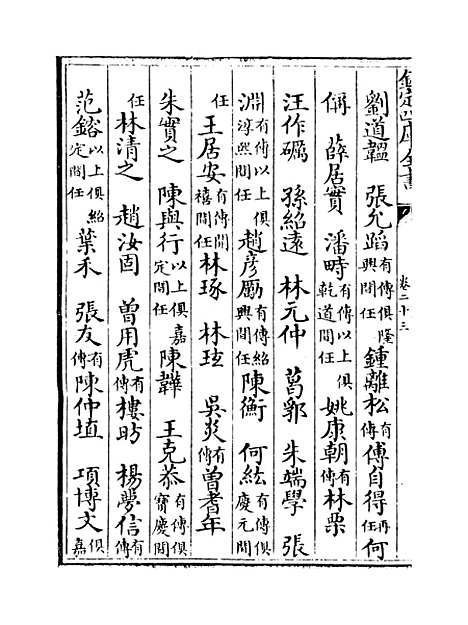 欽定四庫全書
卷二十三
劉道韞　張允蹈有傳俱隆興間任鍾離松有傳傅自得再任何
偁　薛居實　潘畤有傳以上俱乾道間任姚康朝有傳林栗
汪作礪　孫紹遠　林元仲　葛郛　朱端學　張
淵有傳以上俱淳熙間任趙彥勵有傳紹興間任陳衡　何紘慶元間
任王居安有傳開禧間任林琢　林玹　吳炎有傳曾耆年
朱實之　陳與行以上俱嘉定間任陳韡　王克恭有傳俱寶慶間
任林清之　趙汝固　曾用虎有傳樓昉　楊夢信有傳
范鎔以上俱紹定間任葉禾　張友有傳陳仲埴　項博文俱嘉